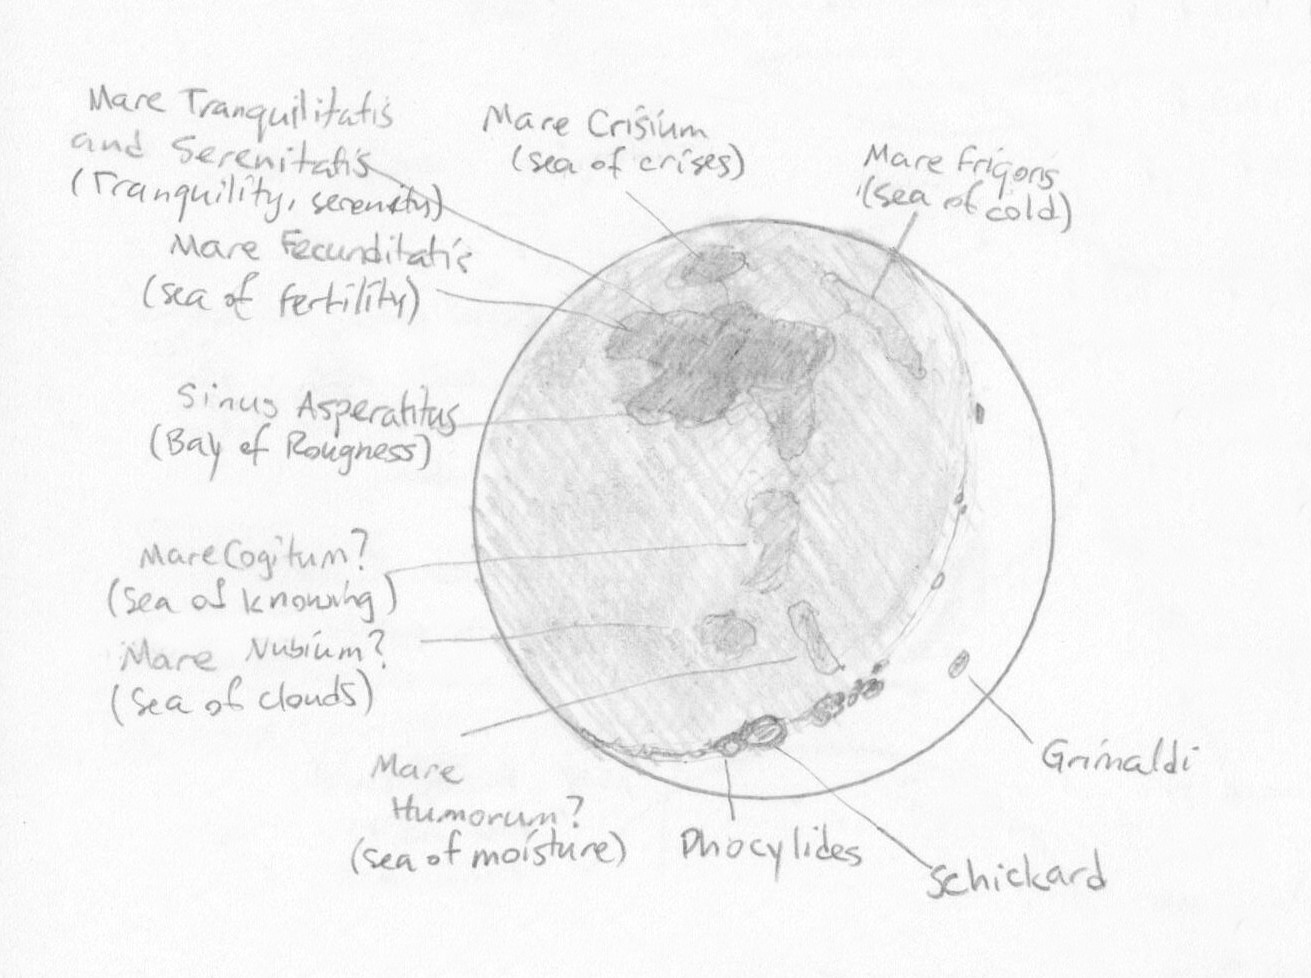 Mare Tranquilitatis
and Serenitatis
(Tranquility, serenity)
Mare Crisium
(sea of crises)
Mare Frigoris
(sea of cold)
Mare Fecunditatis
(sea of fertility)
Sinus Asperatitus
(Bay of Rougness)
Mare Cogitum?
(Sea of knowing)
Mare Nubium?
(Sea of clouds)
Mare
Humorum?
(sea of moisture)
Phocylides
Schickard
Grimaldi